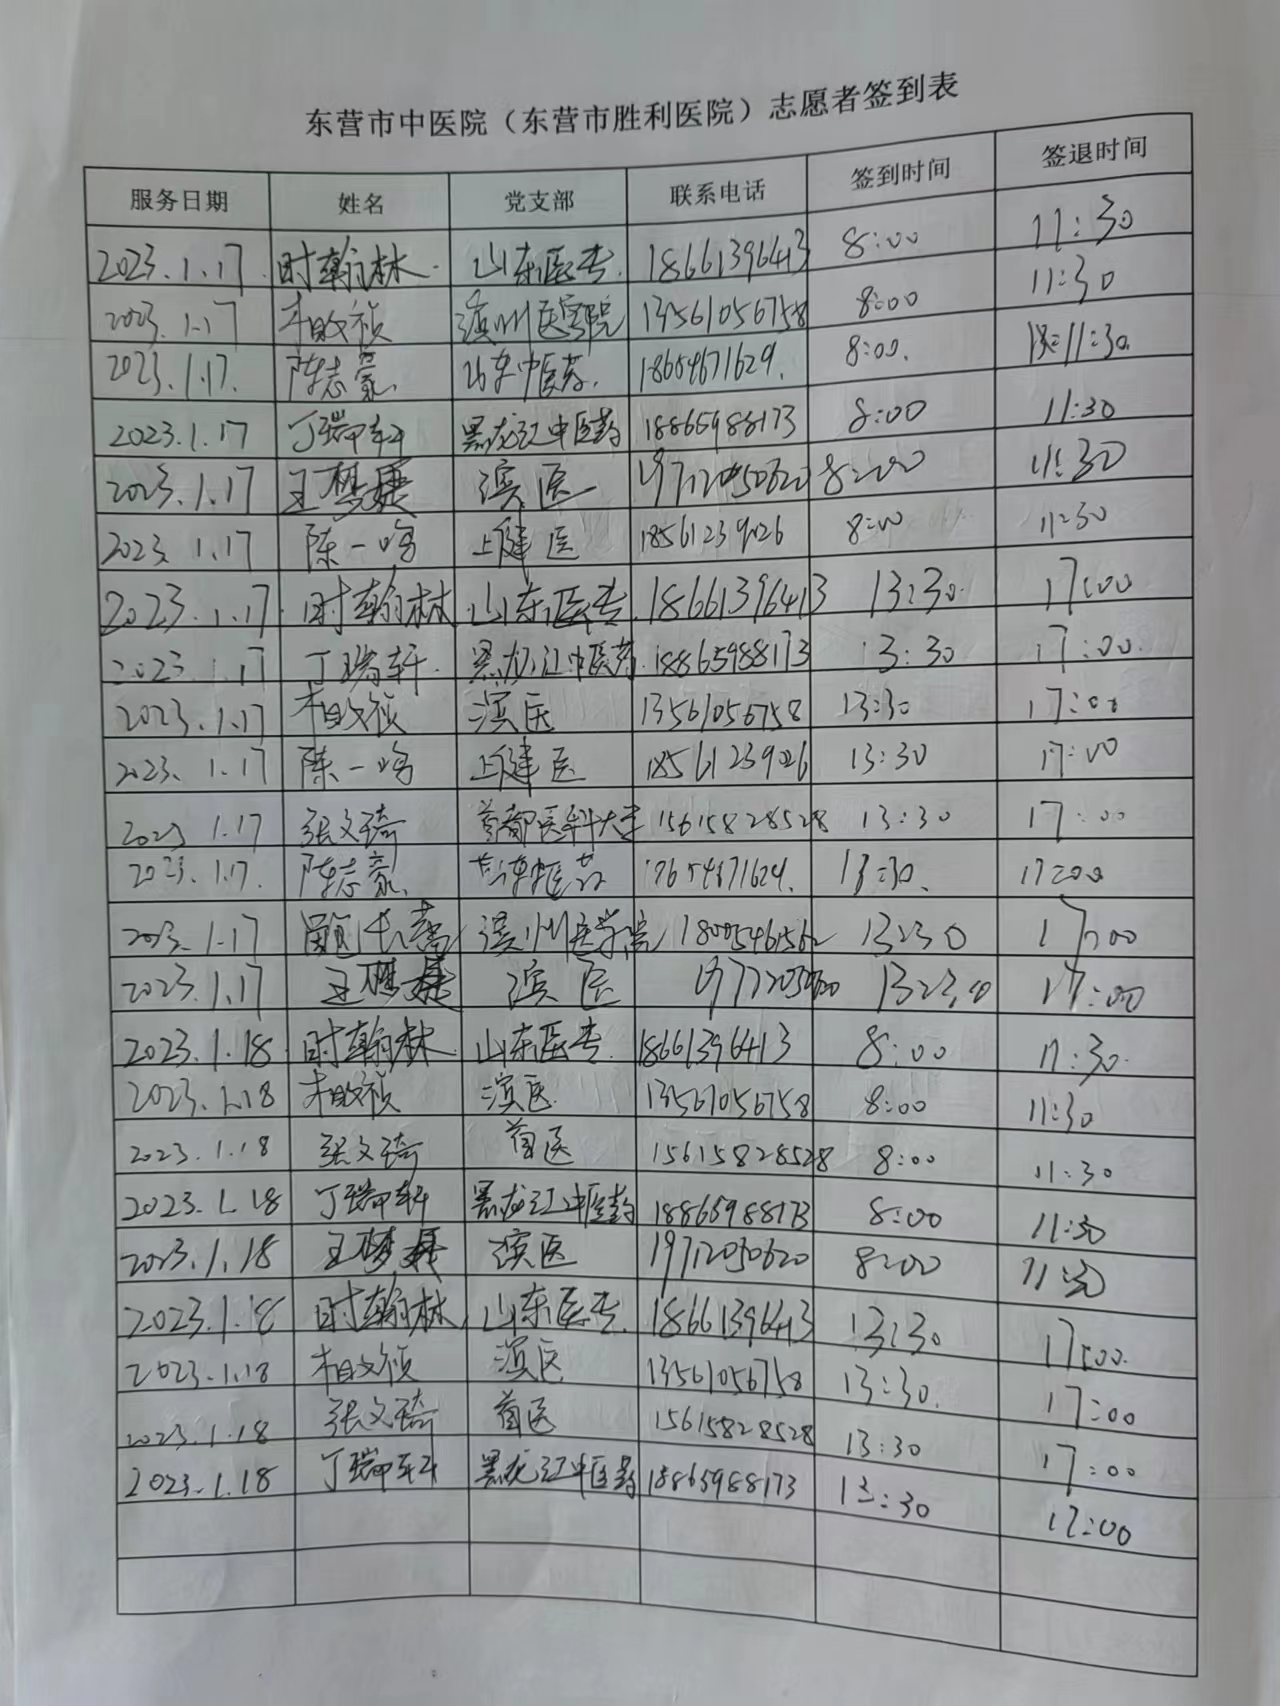 东营市中医院（东营市胜利医院）志愿者签到表
服务日期 姓名 党支部 联系电话 签到时间 签退时间
2023.1.17 时翰林 山东医专 18661396413 8:00 11:30
2023.1.17 相政祯 滨州医学院 13561056758 8:00 11:30
2023.1.17 陈志豪 山东中医药 18654671629 8:00 11:30
2023.1.17 丁瑞轩 黑龙江中医药 18865988173 8:00 11:30
2023.1.17 王梦婕 滨医 19712050620 8:00 11:30
2023.1.17 陈一鸣 上健医 18561239026 8:00 11:30
2023.1.17 时翰林 山东医专 18661396413 13:30 17:00
2023.1.17 丁瑞轩 黑龙江中医药 18865988173 13:30 17:00
2023.1.17 相政祯 滨医 13561056758 13:30 17:00
2023.1.17 陈一鸣 上健医 18561239026 13:30 17:00
2023.1.17 张文琦 首都医科大学 15615828528 13:30 17:00
2023.1.17 陈志豪 山东中医药 18654671629 13:30 17:00
2023.1.17 滨州医学院 13:30 17:00
2023.1.17 王梦婕 滨医 13:30 17:00
2023.1.18 时翰林 山东医专 18661396413 8:00 11:30
2023.1.18 相政祯 滨医 13561056758 8:00 11:30
2023.1.18 张文琦 首医 15615828528 8:00 11:30
2023.1.18 丁瑞轩 黑龙江中医药 18865988173 8:00 11:30
2023.1.18 王梦婕 滨医 19712050620 8:00 11:30
2023.1.18 时翰林 山东医专 18661396413 13:30 17:00
2023.1.18 相政祯 滨医 13561056758 13:30 17:00
2023.1.18 张文琦 首医 15615828528 13:30 17:00
2023.1.18 丁瑞轩 黑龙江中医药 18865988173 13:30 17:00